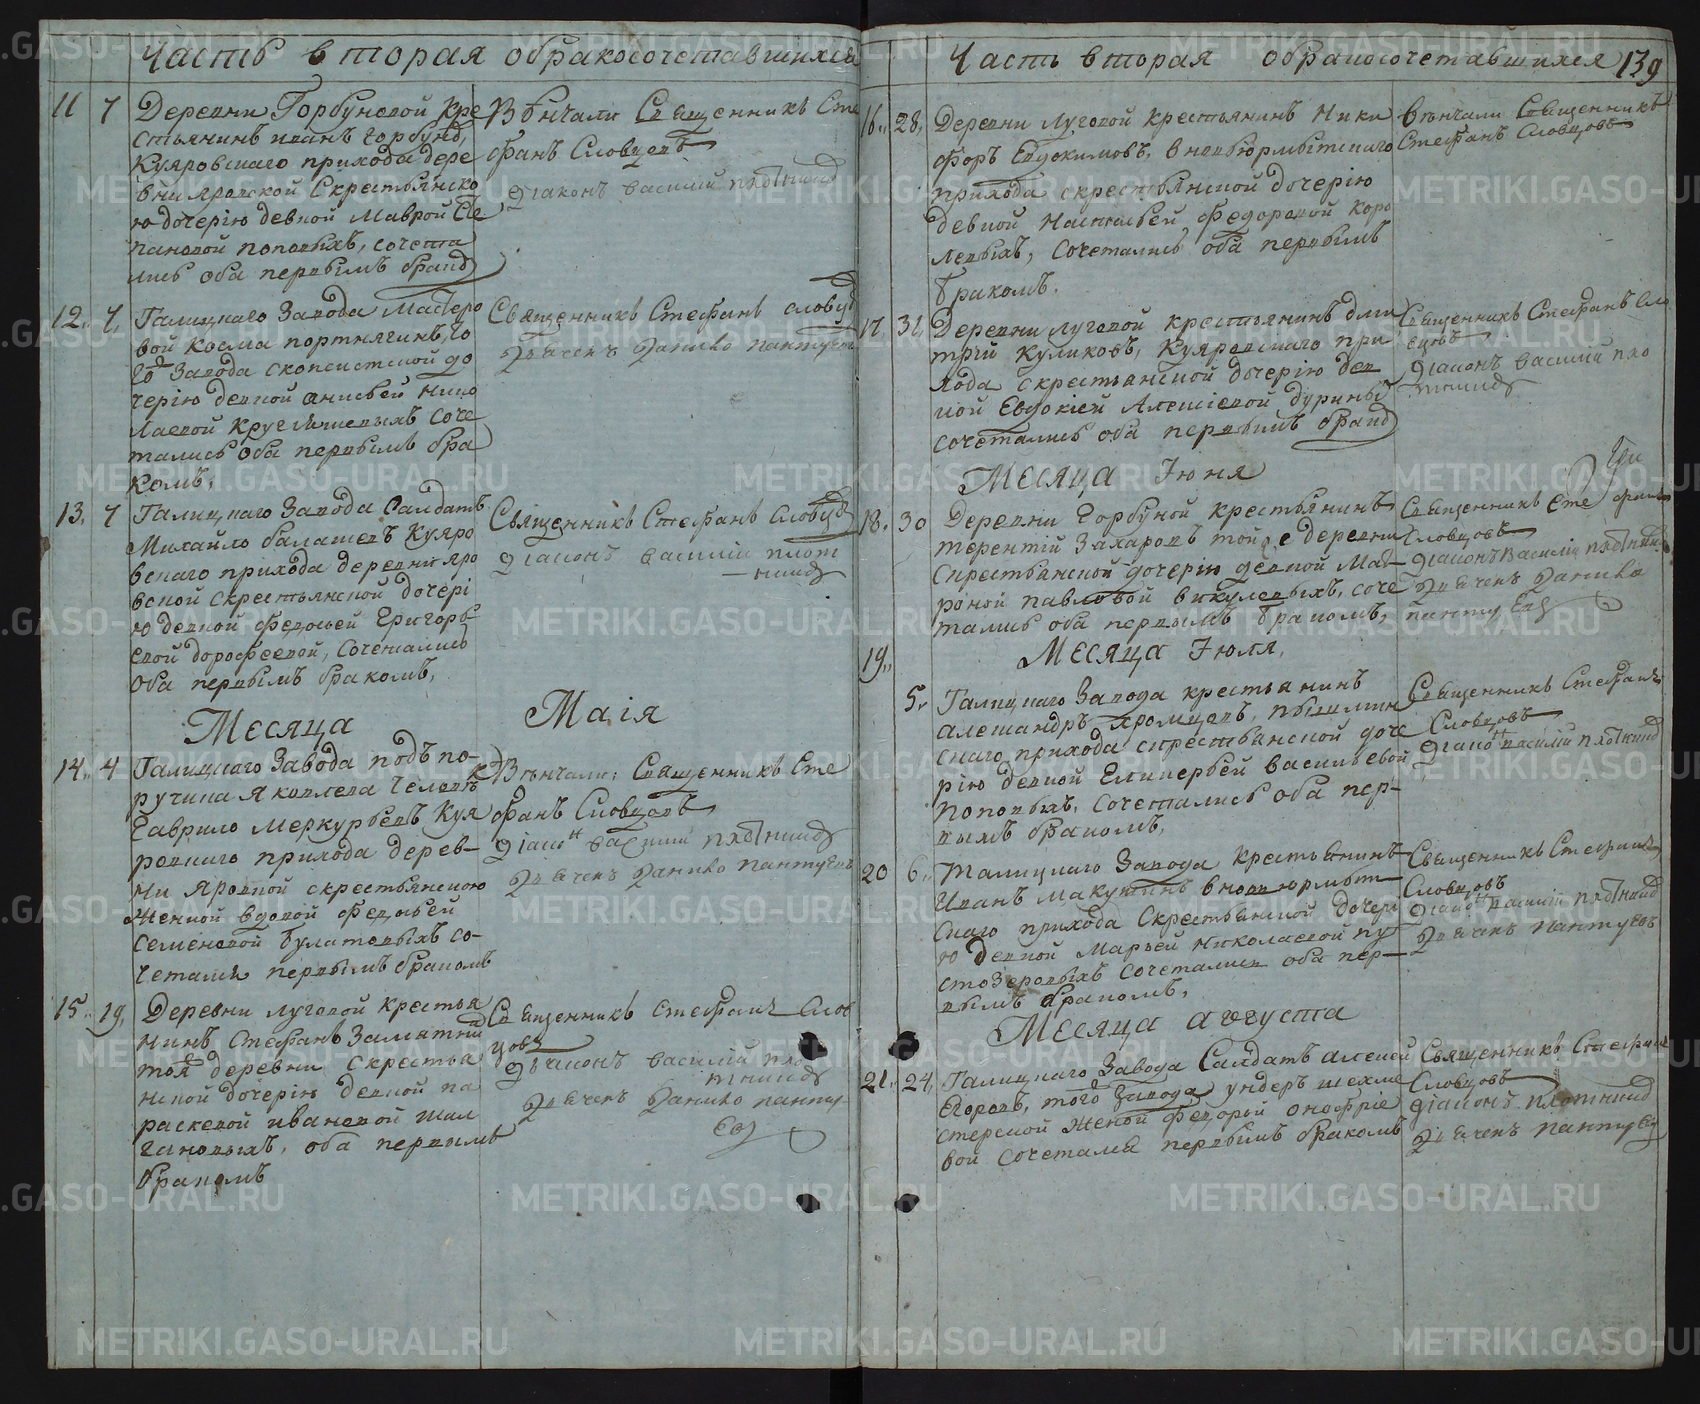 Часть вторая обракосочетавшихся
11 7 Деревни Горбуновой кре
стьянинъ иванъ горбунов,
Кояровскаго прихода дере
вни яровской скрестьянско
ю дочерію девкой Маврой Сте
пановой поповыхъ, сочета
лись оба первымъ браком
Вѣнчали Священникъ Сте
фанъ Словцовъ
діаконъ василий плотников
12. 7. Талицкаго Завода Мастеро
вой косма портнягинъ, то
го Завода
черію девкой анисьей нико
лаевой сочe
тались оба первымъ бра
комъ,
Священникъ Стефанъ словцов
дьячекъ данило пантуев
13. 7 Талицкаго Завода Салдатъ
Михайло балашевъ Кояро
вскаго прихода деревни яро
вской скрестьянской дочері
ю девкой федосьей Григорь
евой дорофеевой, сочетались
оба первымъ бракомъ,
Священникъ Стефанъ Словцов
діаконъ василій плот
ников
Месяца Маія
14. 4 Талицкаго Завода подъпо-
ручика Яковлева человек
Гаврило Меркурьевъ Куя
ровскаго прихода дерев-
ни яровкой скрестьянскою
женкой вдовой федосьей
семеновой булатовыхъ со-
четался первымъ бракомъ
Вѣнчали: Священникъ Сте
фанъ Словцовъ
діакон василий плотников
дьячекъ данило пантуевъ
15. 19. Деревни луговой крестья
нинъ Стефанъ Заматкин
той деревни скрестья
нской дочерію девкой па
раскевой ивановой шал
гановыхъ, оба первымъ
бракомъ
Священникъ стефанъ Слов
цовъ
дьяконъ василій пло
тников
дьячекъ данило панту
ев
Часть вторая обракосочетавшихся 139
16. 28. Деревни луговой крестьянинъ Ники
форъ Евдокимовъ, вновьюрмытскаго
прихода скрестьянской дочерію
девкой Настасьей федоровой коро
левыхъ, сочетались оба первымъ
бракомъ.
Венчали Священникъ
Стефанъ Словцовъ
17. 31. Деревни луговой крестьянинъ дми
трій куликовъ, Кояровскаго при
хода скрестьянской дочерію дев
кой Евдокіей Алексіевой дурины
сочетались оба первымъ браком
Священникъ Стефанъ Сло
вцовъ
діаконъ василий пло
тников
Месяца Іюня
18. 30 Деревни горбуной крестьянинъ
терентій Захаровъ той е деревни
скрестьянской дочерію девкой Мат
роной павловой викулевыхъ, соче
тались оба первымъ бракомъ,
Священникъ Сте фанъ
Словцовъ
діаконъ василій плотников
дьячекъ данило
пантуев
Месяца Іюля,
19.
5. Талицкаго Завода крестьянинъ
александръ хромцовъ, пышмин
скаго прихода скрестьянской доче
рію девкой Гликерьей васильевой
поповыхъ, сочетались оба пер-
вымъ бракомъ,
Священникъ Стефанъ
Словцовъ
діакон василій плотников
20 6. Талицкаго Завода крестьянинъ
Иванъ Макушинъ вновьюрмыт
скаго прихода скрестьянской дочері
ю девкой Марьей николаевой пу
стозеровыхъ сочетались оба пер-
вымъ бракомъ,
Священникъ Стефанъ
Словцовъ
діакон василий плотников
дьячекъ пантуевъ
Месяца августа
21. 24, Талицкаго Завода Салдатъ алексей
Егоровъ, того завода ундеръ шехме
стерской женой федорой онофріе
вой сочетался первымъ бракомъ
Священникъ Стефан
Словцовъ
діаконъ плотников
дьячекъ пантуев